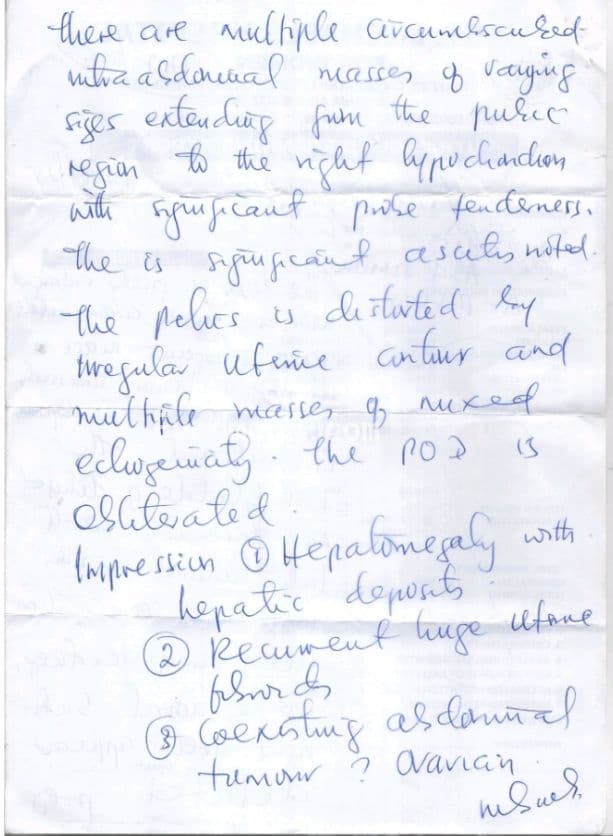 there are multiple circumscribed
intraabdominal masses of varying
sizes extending from the pubic
region to the right hypochondrion
with significant probe tenderness.
The is significant ascites noted.
The pelvis is distorted by
irregular uterine contour and
multiple masses of mixed
echogenicity. The POD is
obliterated.
Impression ① Hepatomegaly with
hepatic deposits
② Recurrent huge uterine
fibroids
③ Coexisting abdominal
tumour ? Ovarian.